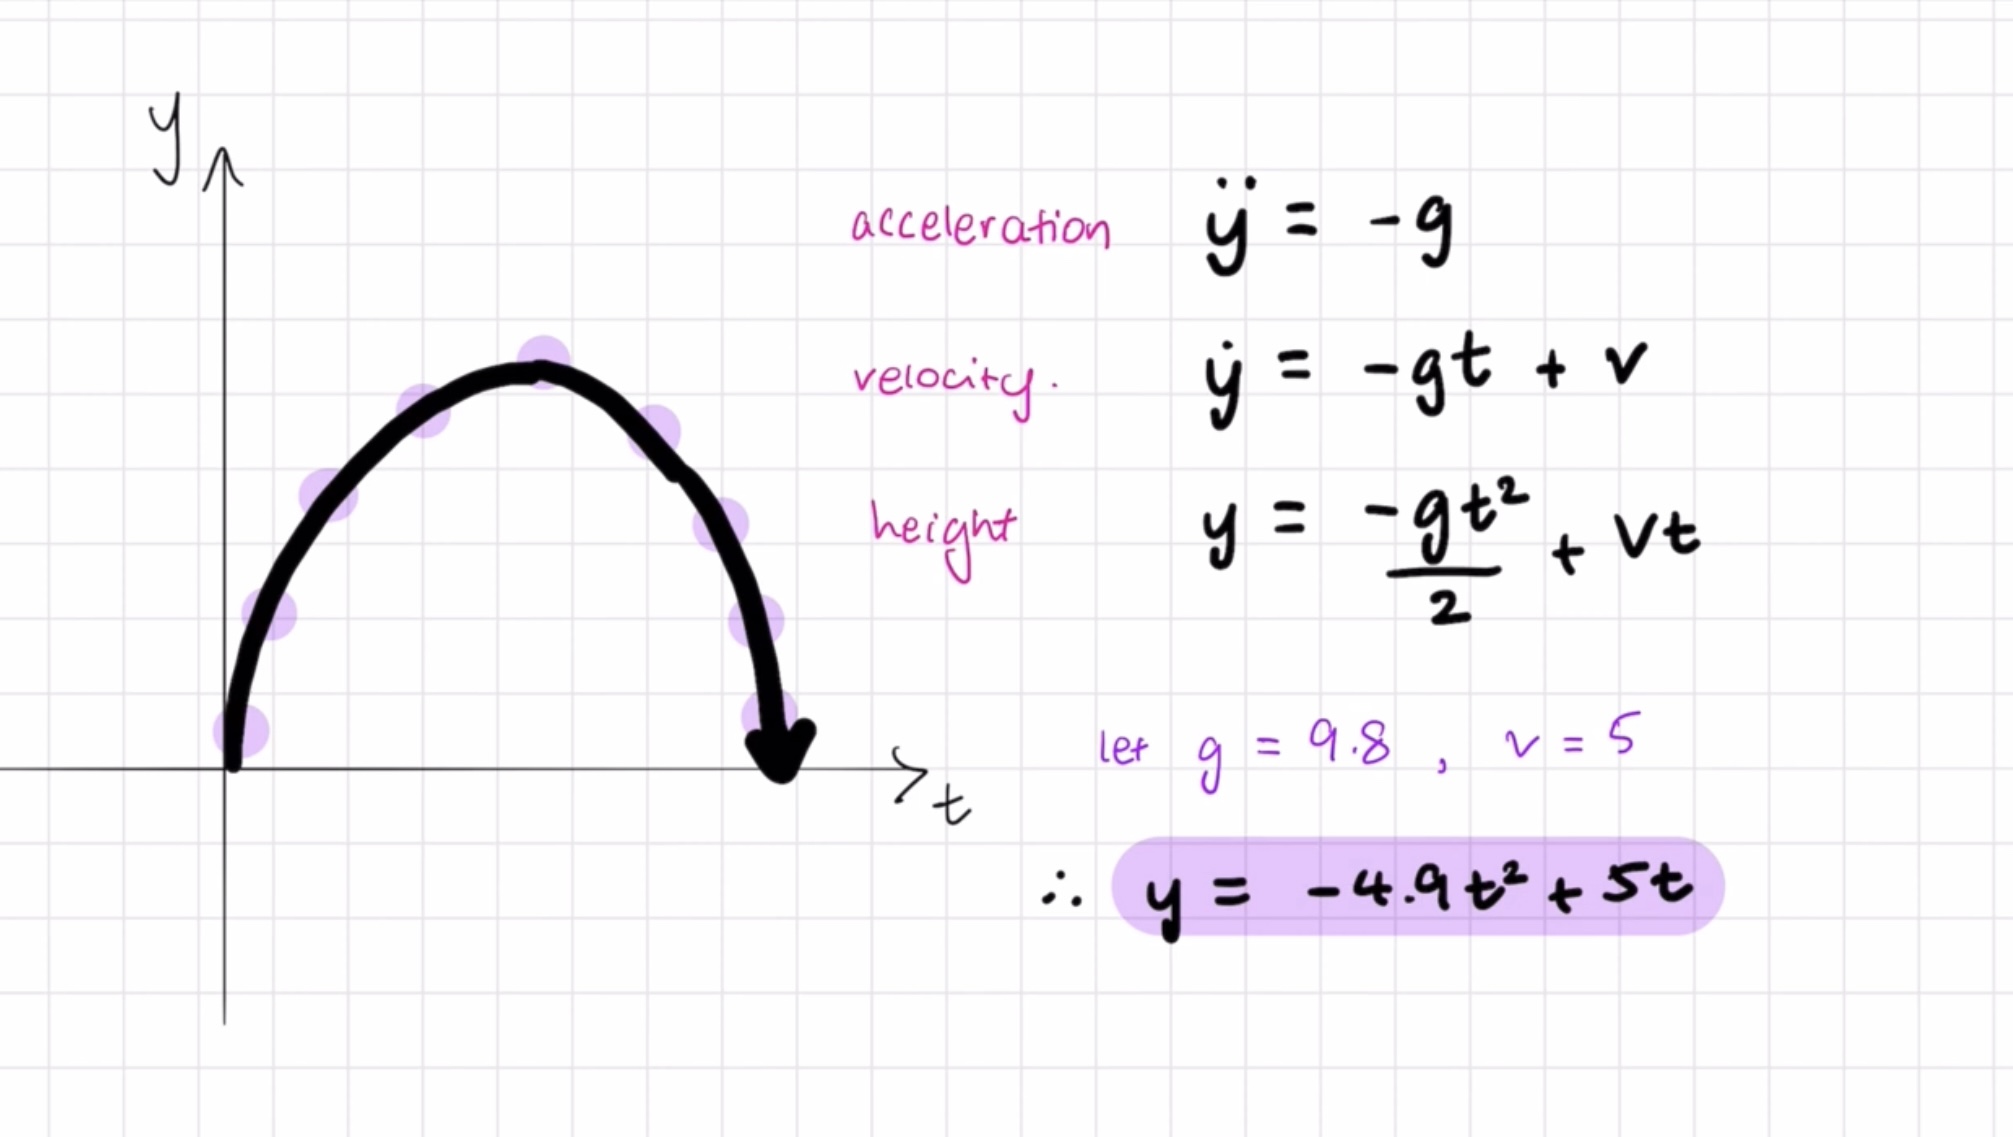 y
acceleration ÿ = -g
velocity. ẏ = -gt + v
height y = -gt²/2 + vt
let g = 9.8 , v = 5
t
∴ y = -4.9t² + 5t